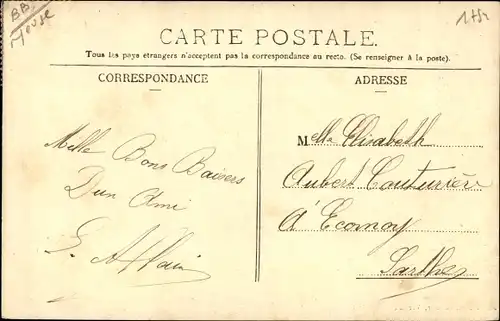 BB
Meuse
CARTE POSTALE.
Tous les pays étrangers n'acceptent pas la correspondance au recto. (Se renseigner à la poste).
CORRESPONDANCE
ADRESSE
Mille Bons Baisers
Dun Ami
Melle Elisabeth
Aubert Couturière
A' Ecomoy
Sarthe